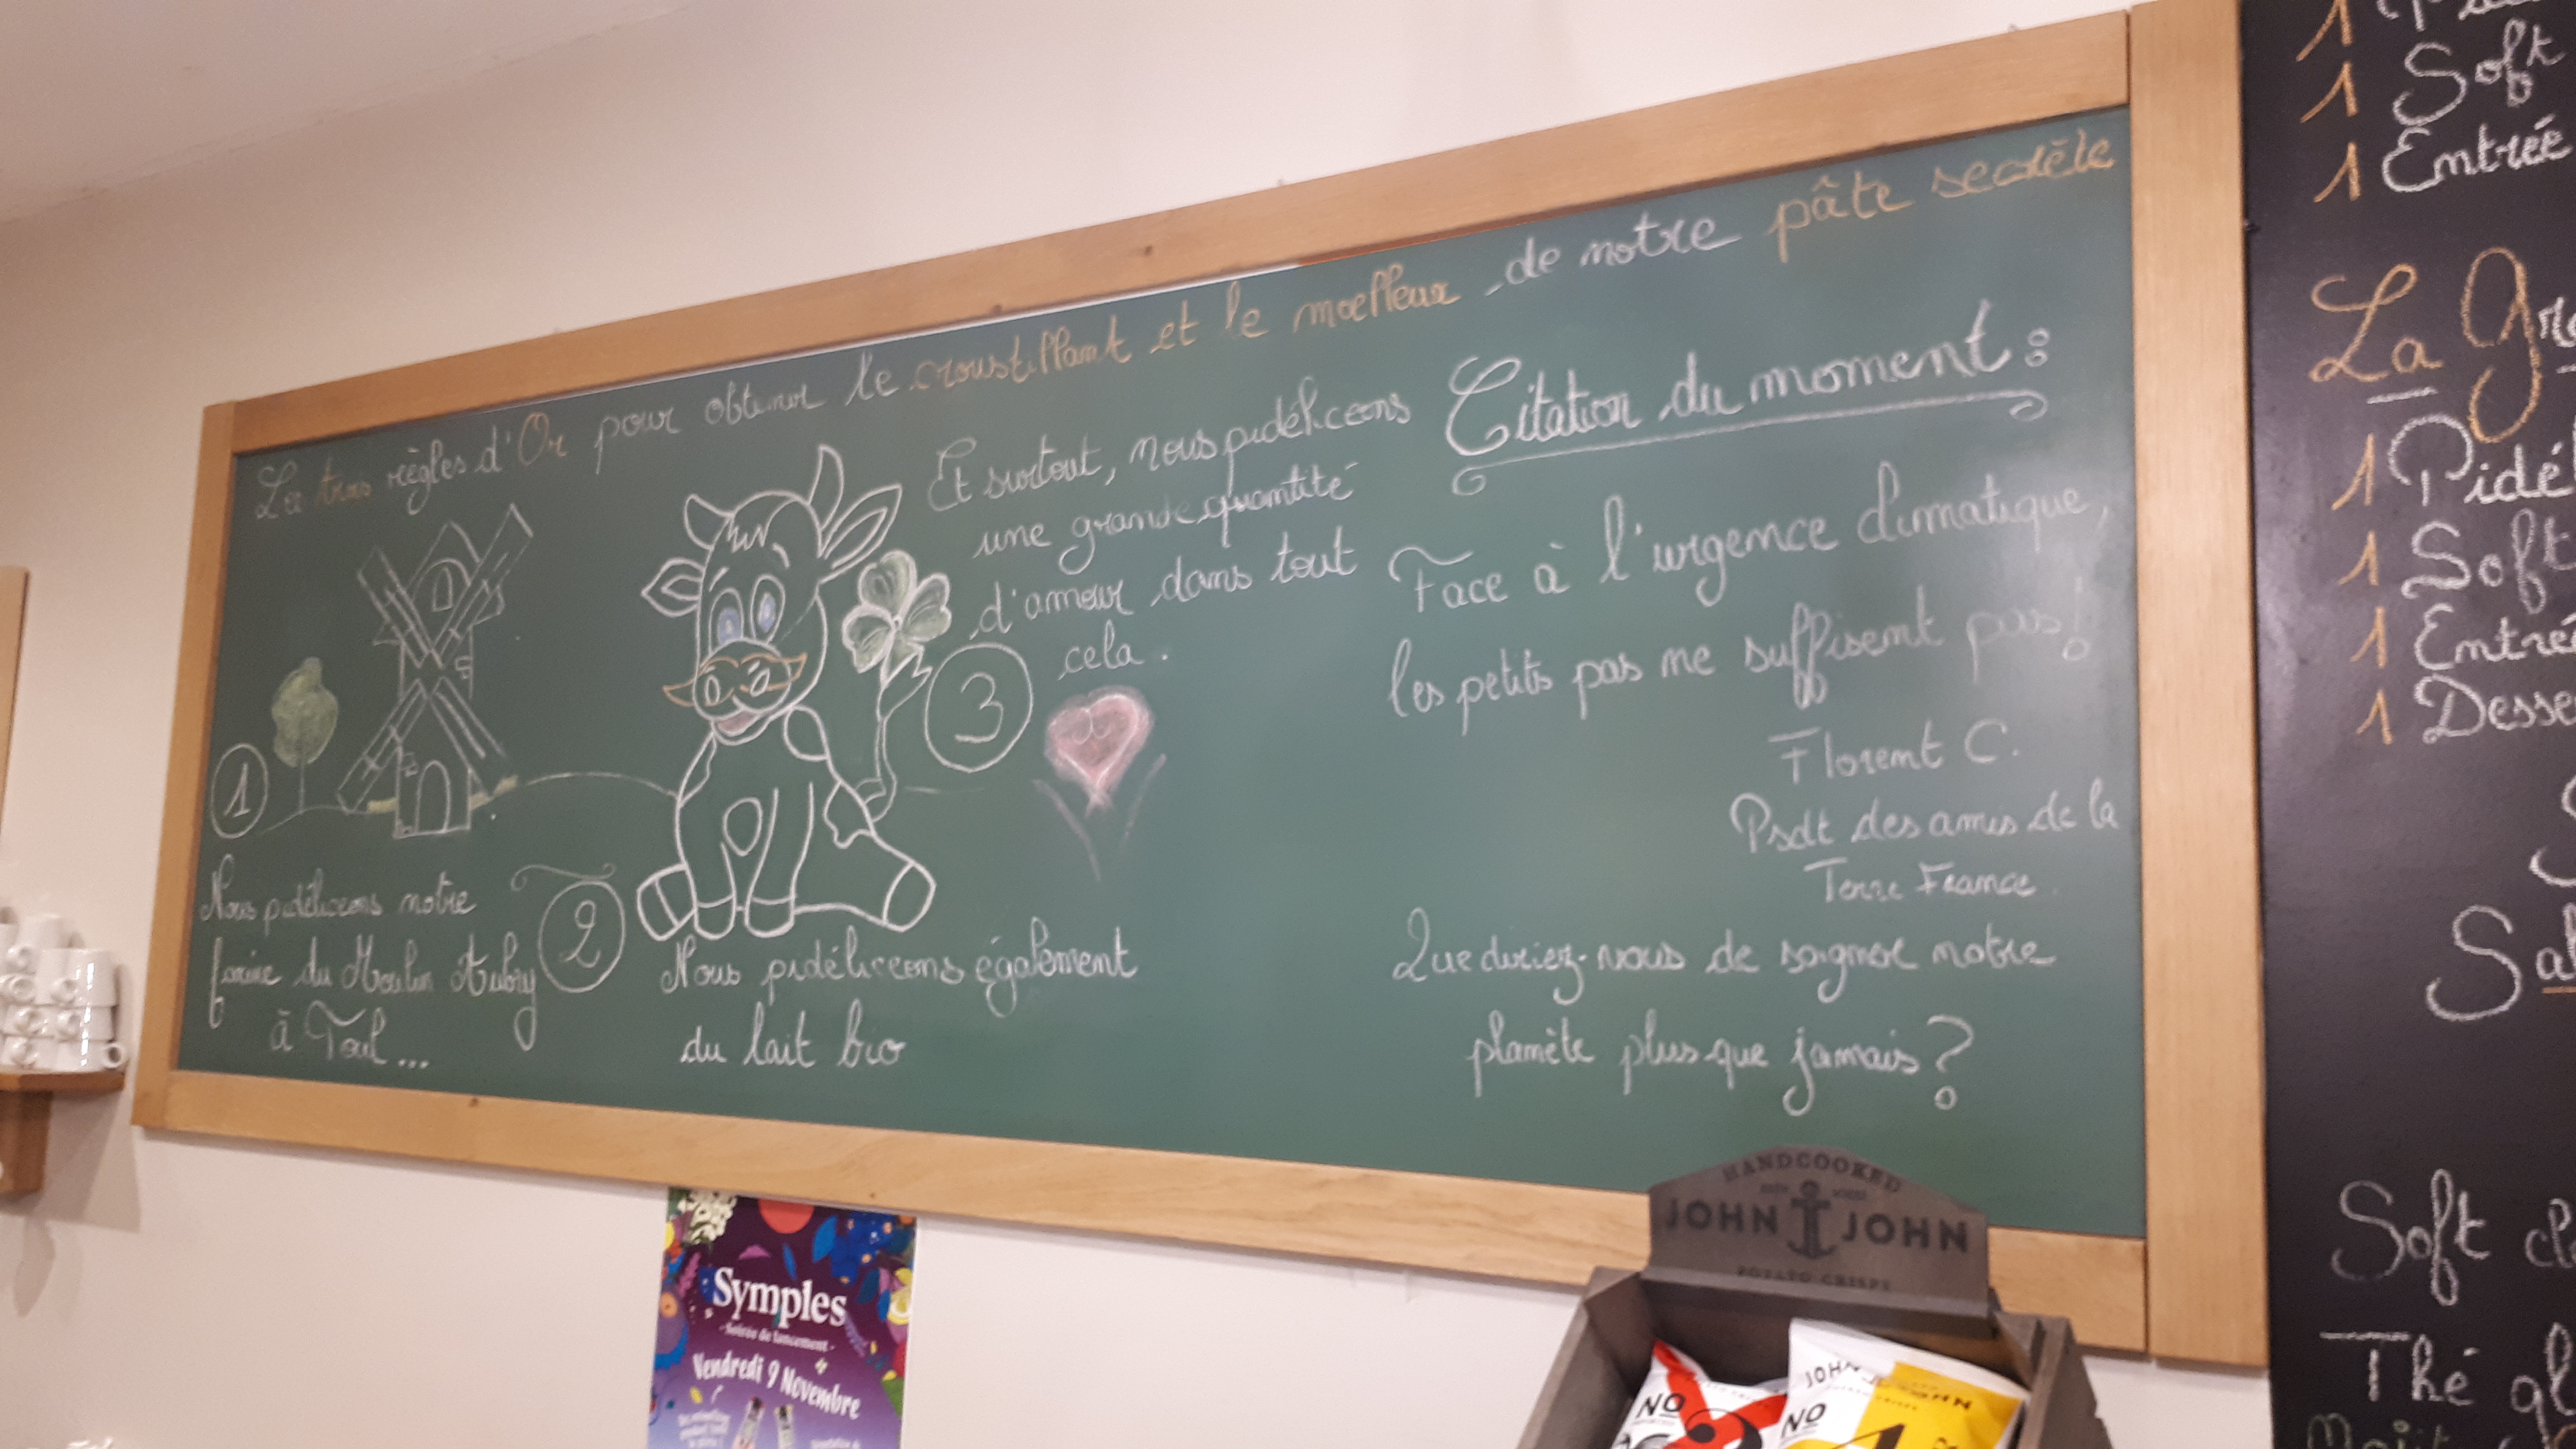 Les trois règles d'Or pour obtenir le croustillant et le moelleux de notre pâte secrète
1
Nous pidéliceons notre
farine du Moulin Aubry
à Toul...
2
Nous pidéliceons également
du lait bio
3
Et surtout, nous pidéliceons
une grande quantité
d'amour dans tout
cela.
Citation du moment :
Face à l'urgence climatique,
les petits pas ne suffisent pas !
Florent C.
Psdt des amis de la
Terre France.
Que diriez-vous de soigner notre
planète plus que jamais ?
1
1 Soft
1 Entrée
La
1
1 Soft
1
1
Soft
Thé
Symples
- Soirée de lancement -
Vendredi 9 Novembre
HANDCOOKED
JOHN JOHN
POTATO CRISPS
NO
JOHN JOHN
NO